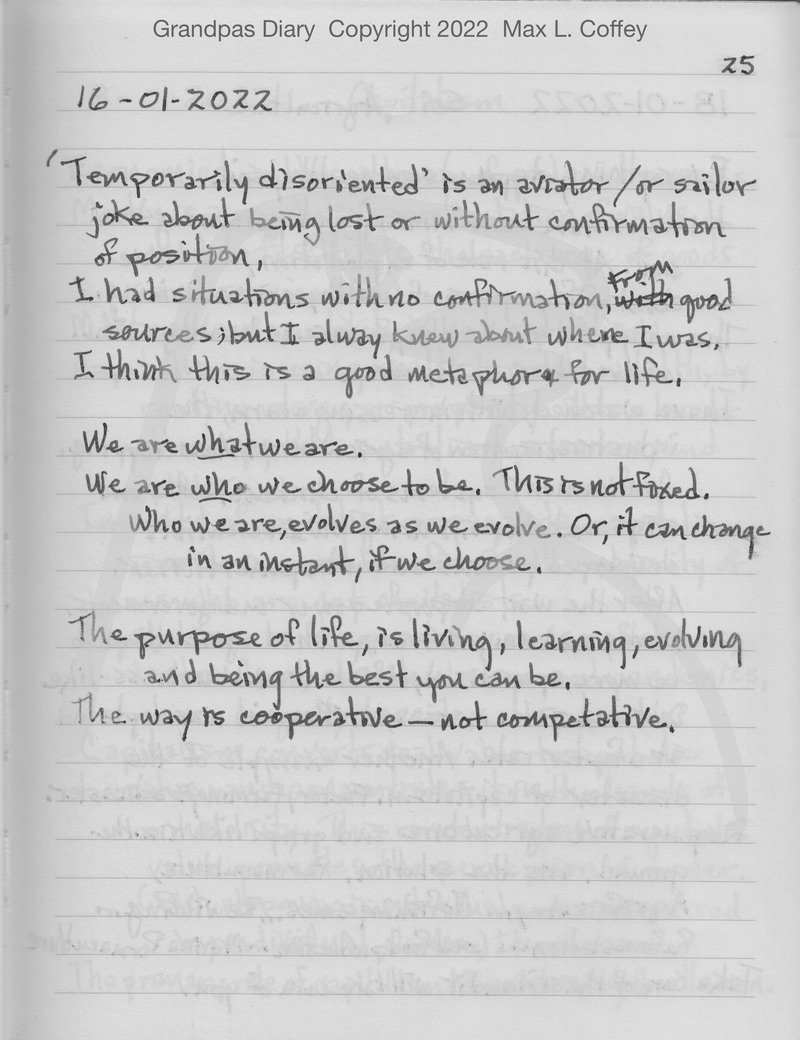 Grandpas Diary Copyright 2022 Max L. Coffey
25
16-01-2022
'Temporarily disoriented' is an aviator /or sailor
joke about being lost or without confirmation
of position,
I had situations with no confirmation, from good
sources; but I alway knew about where I was.
I think this is a good metaphor for life.
We are what we are.
We are who we choose to be. This is not fixed.
Who we are, evolves as we evolve. Or, it can change
in an instant, if we choose.
The purpose of life, is living, learning, evolving
and being the best you can be.
The way is coöperative — not competative.